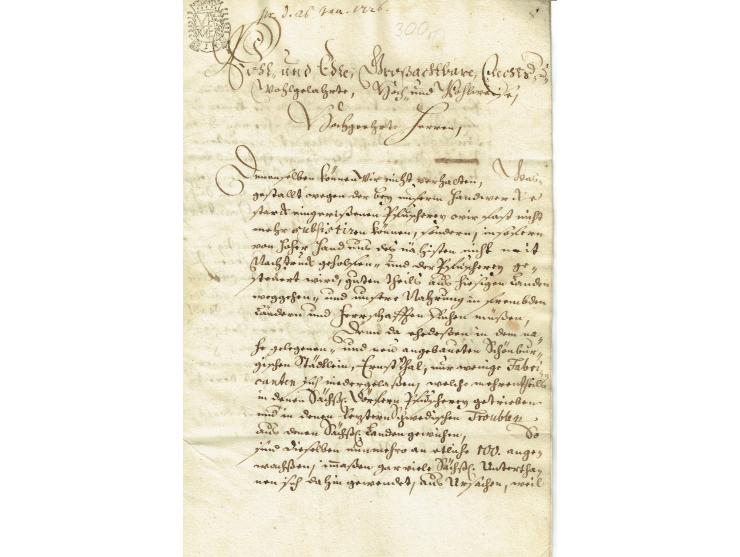 pr. d. 26 Jan. 1726.
300,-
Wohl- und Edle, Großachtbare, Rechts-
Wohlgelahrte, Hoch- und Wohlweise,
Hochgeehrte Herren,
Denenselben können wir nicht verhalten, Was-
gestallt wegen der bey unserm Handwercke
starck eingerißenen Pfuscherey wir fast nicht
mehr subsistiren können, sondern, insofern
von hoher Hand uns des nähisten nicht mit
Nachdruck geholffen- und der Pfuscherey ge-
steuert wird, guten theils aus hiesigen Landen
weggehen- und unsere Nahrung in frembden
Ländern und Herrschafften suchen müßen,
Denn da ehedeßen in dem na-
he gelegenen- und neu angebaueten Schönbur-
gischen Städlein, Ernstthal, nur wenige Fabri-
canten sich niedergelaßen, welche mehrentheils
in denen Sächß. Dörffern Pfuscherey getrieben
und in denen letztern Schwedischen Troublen
aus denen Sächß. Landen gewichen, So
sind dieselben nunmehro an etliche 100. ange-
wachßen, immaßen gar viele Sächß. Untertha-
nen sich dahin gewendet, aus Ursachen, weil